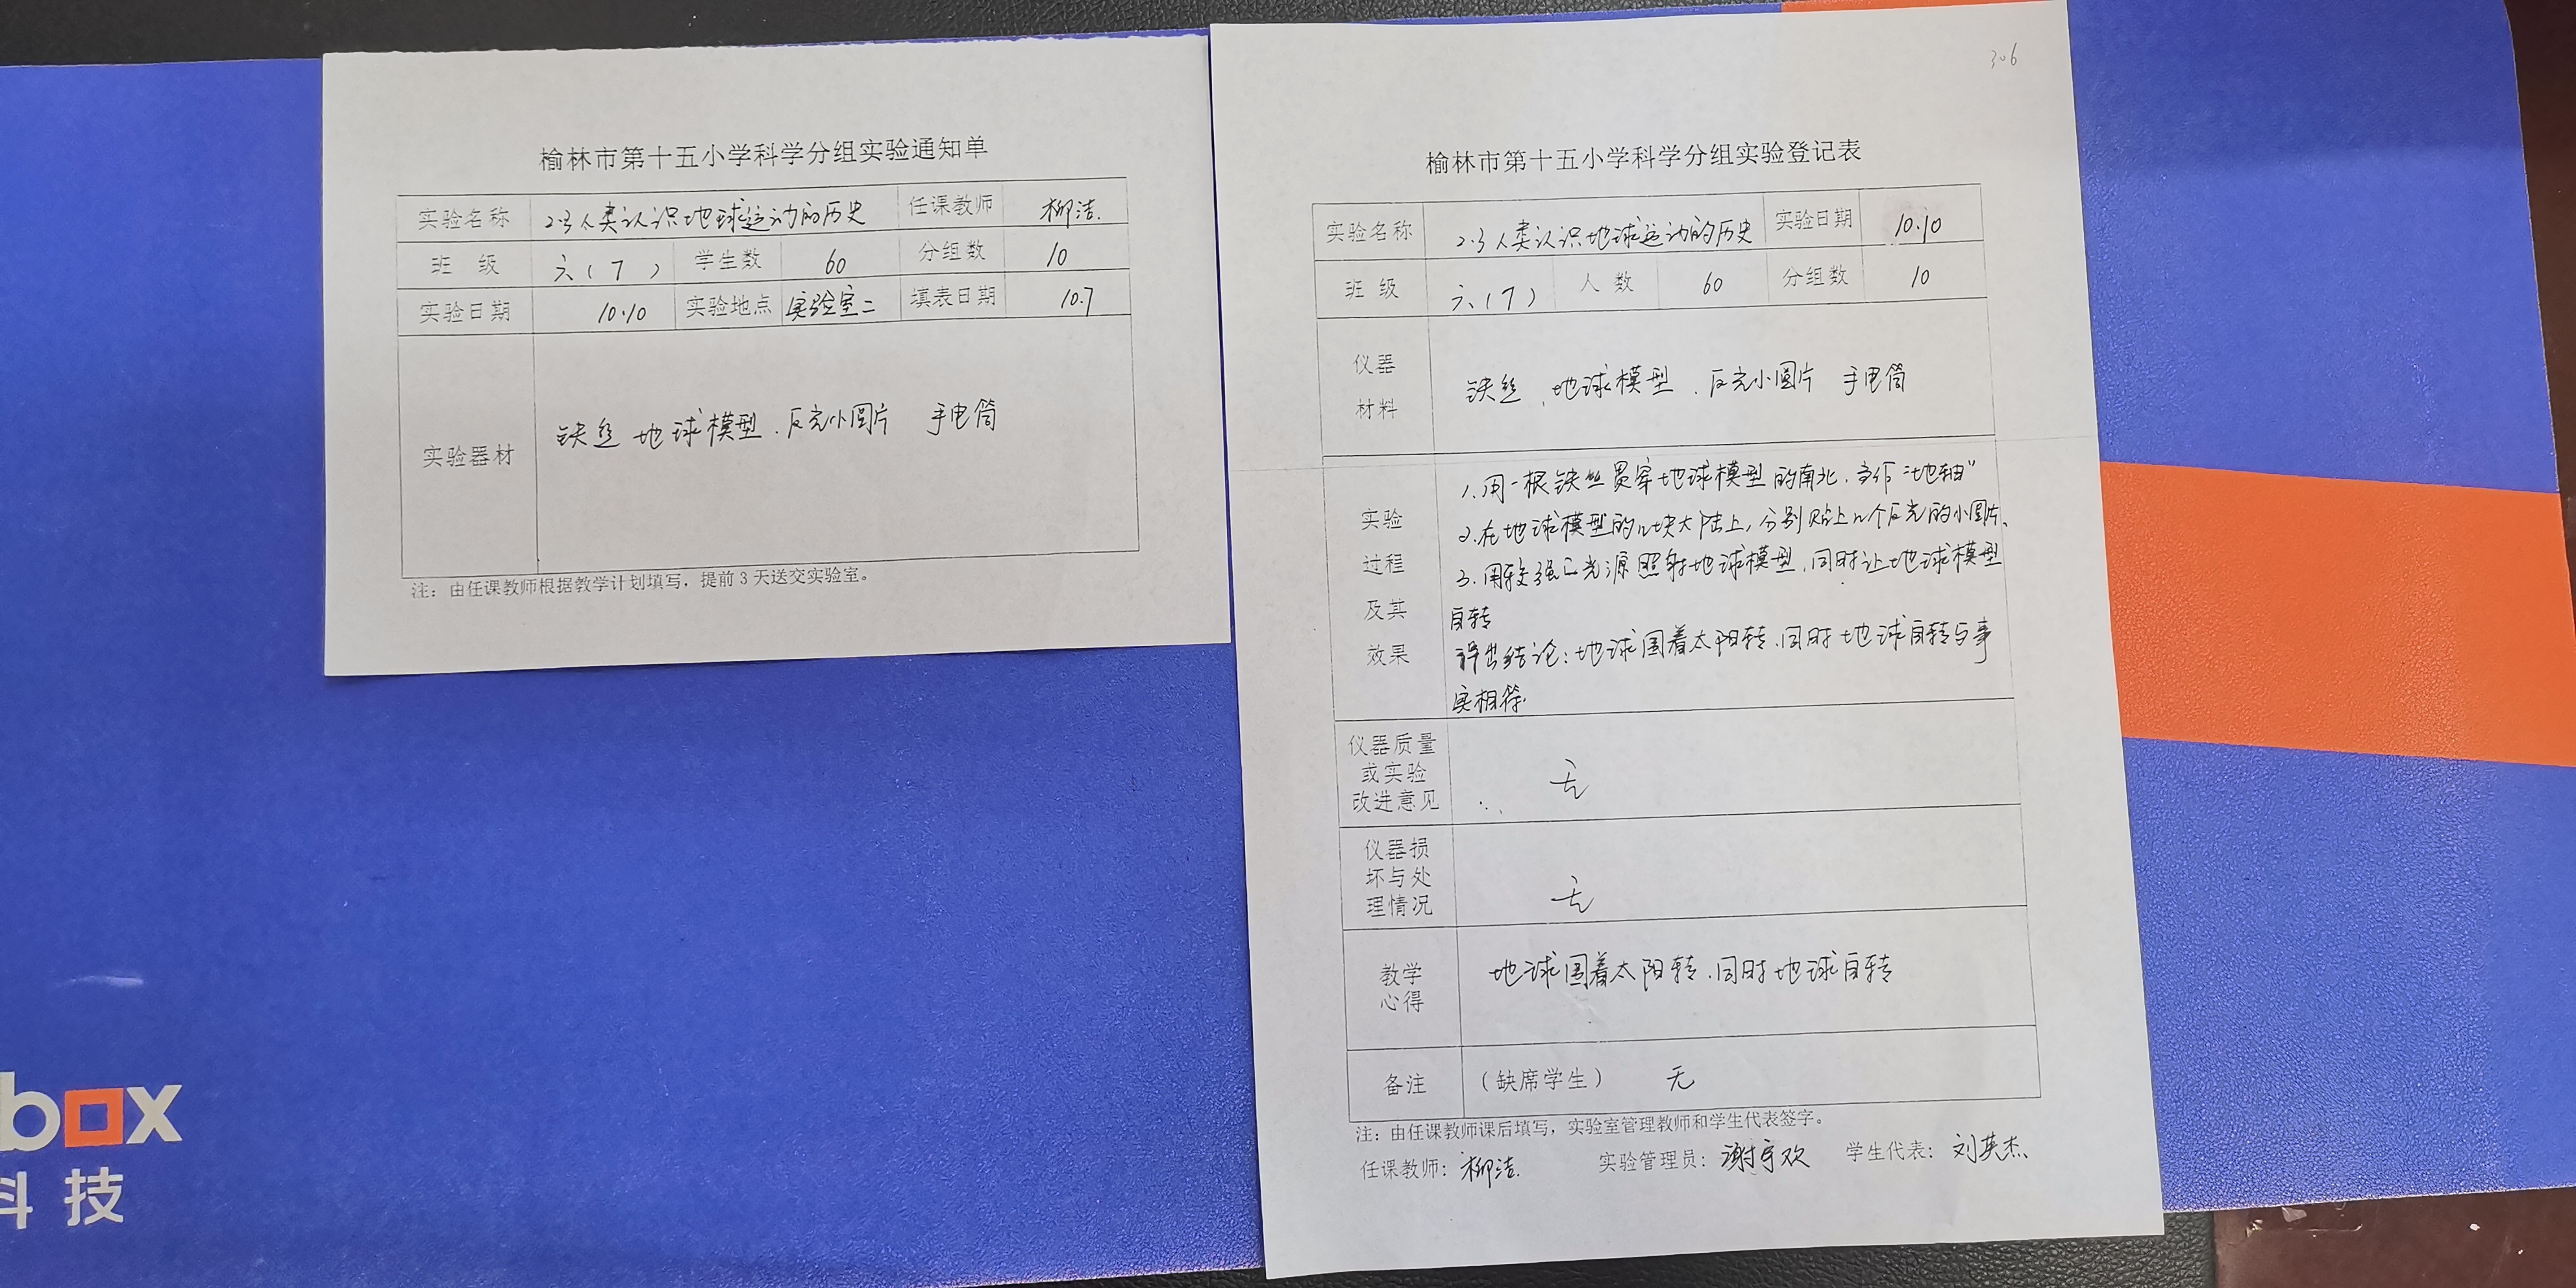 榆林市第十五小学科学分组实验通知单
实验名称 2.3人类认识地球运动的历史 任课教师 柳洁.
班 级 六(7) 学生数 60 分组数 10
实验日期 10.10 实验地点 实验室二 填表日期 10.7
实验器材 铁丝 地球模型.反光小圆片 手电筒
注：由任课教师根据教学计划填写，提前3天送交实验室。
306
榆林市第十五小学科学分组实验登记表
实验名称 2.3人类认识地球运动的历史 实验日期 10.10
班 级 六(7) 人 数 60 分组数 10
仪器
材料
铁丝、地球模型.反光小圆片 手电筒
实验
过程
及其
效果
1.用一根铁丝贯穿地球模型的南北.当作“地轴”
2.在地球模型的几块大陆上，分别贴上几个反光的小圆片、
3.用较强的光源照射地球模型，同时让地球模型
自转
得出结论：地球围着太阳转.同时地球自转与事
实相符.
仪器质量
或实验
改进意见
无
仪器损
坏与处
理情况
无
教学
心得
地球围着太阳转.同时地球自转
备注 （缺席学生） 无
注：由任课教师课后填写，实验室管理教师和学生代表签字。
任课教师：柳洁. 实验管理员：谢宇欢 学生代表：刘英杰、
box
科技